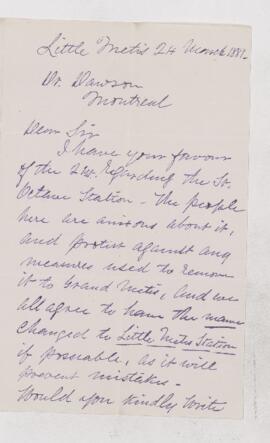 Little Metis 24 March 1881.
Dr. Dawson
Montreal
Dear Sir
I have your favour
of the Regarding the St.
Octave Station - The people
here are anxious about it,
and protest against any
measures used to remove
it to Grand Metis, and we
all agree to have the name
changed to Little Metis Station
if possable, as it will
prevent mistakes -
Would you kindly write